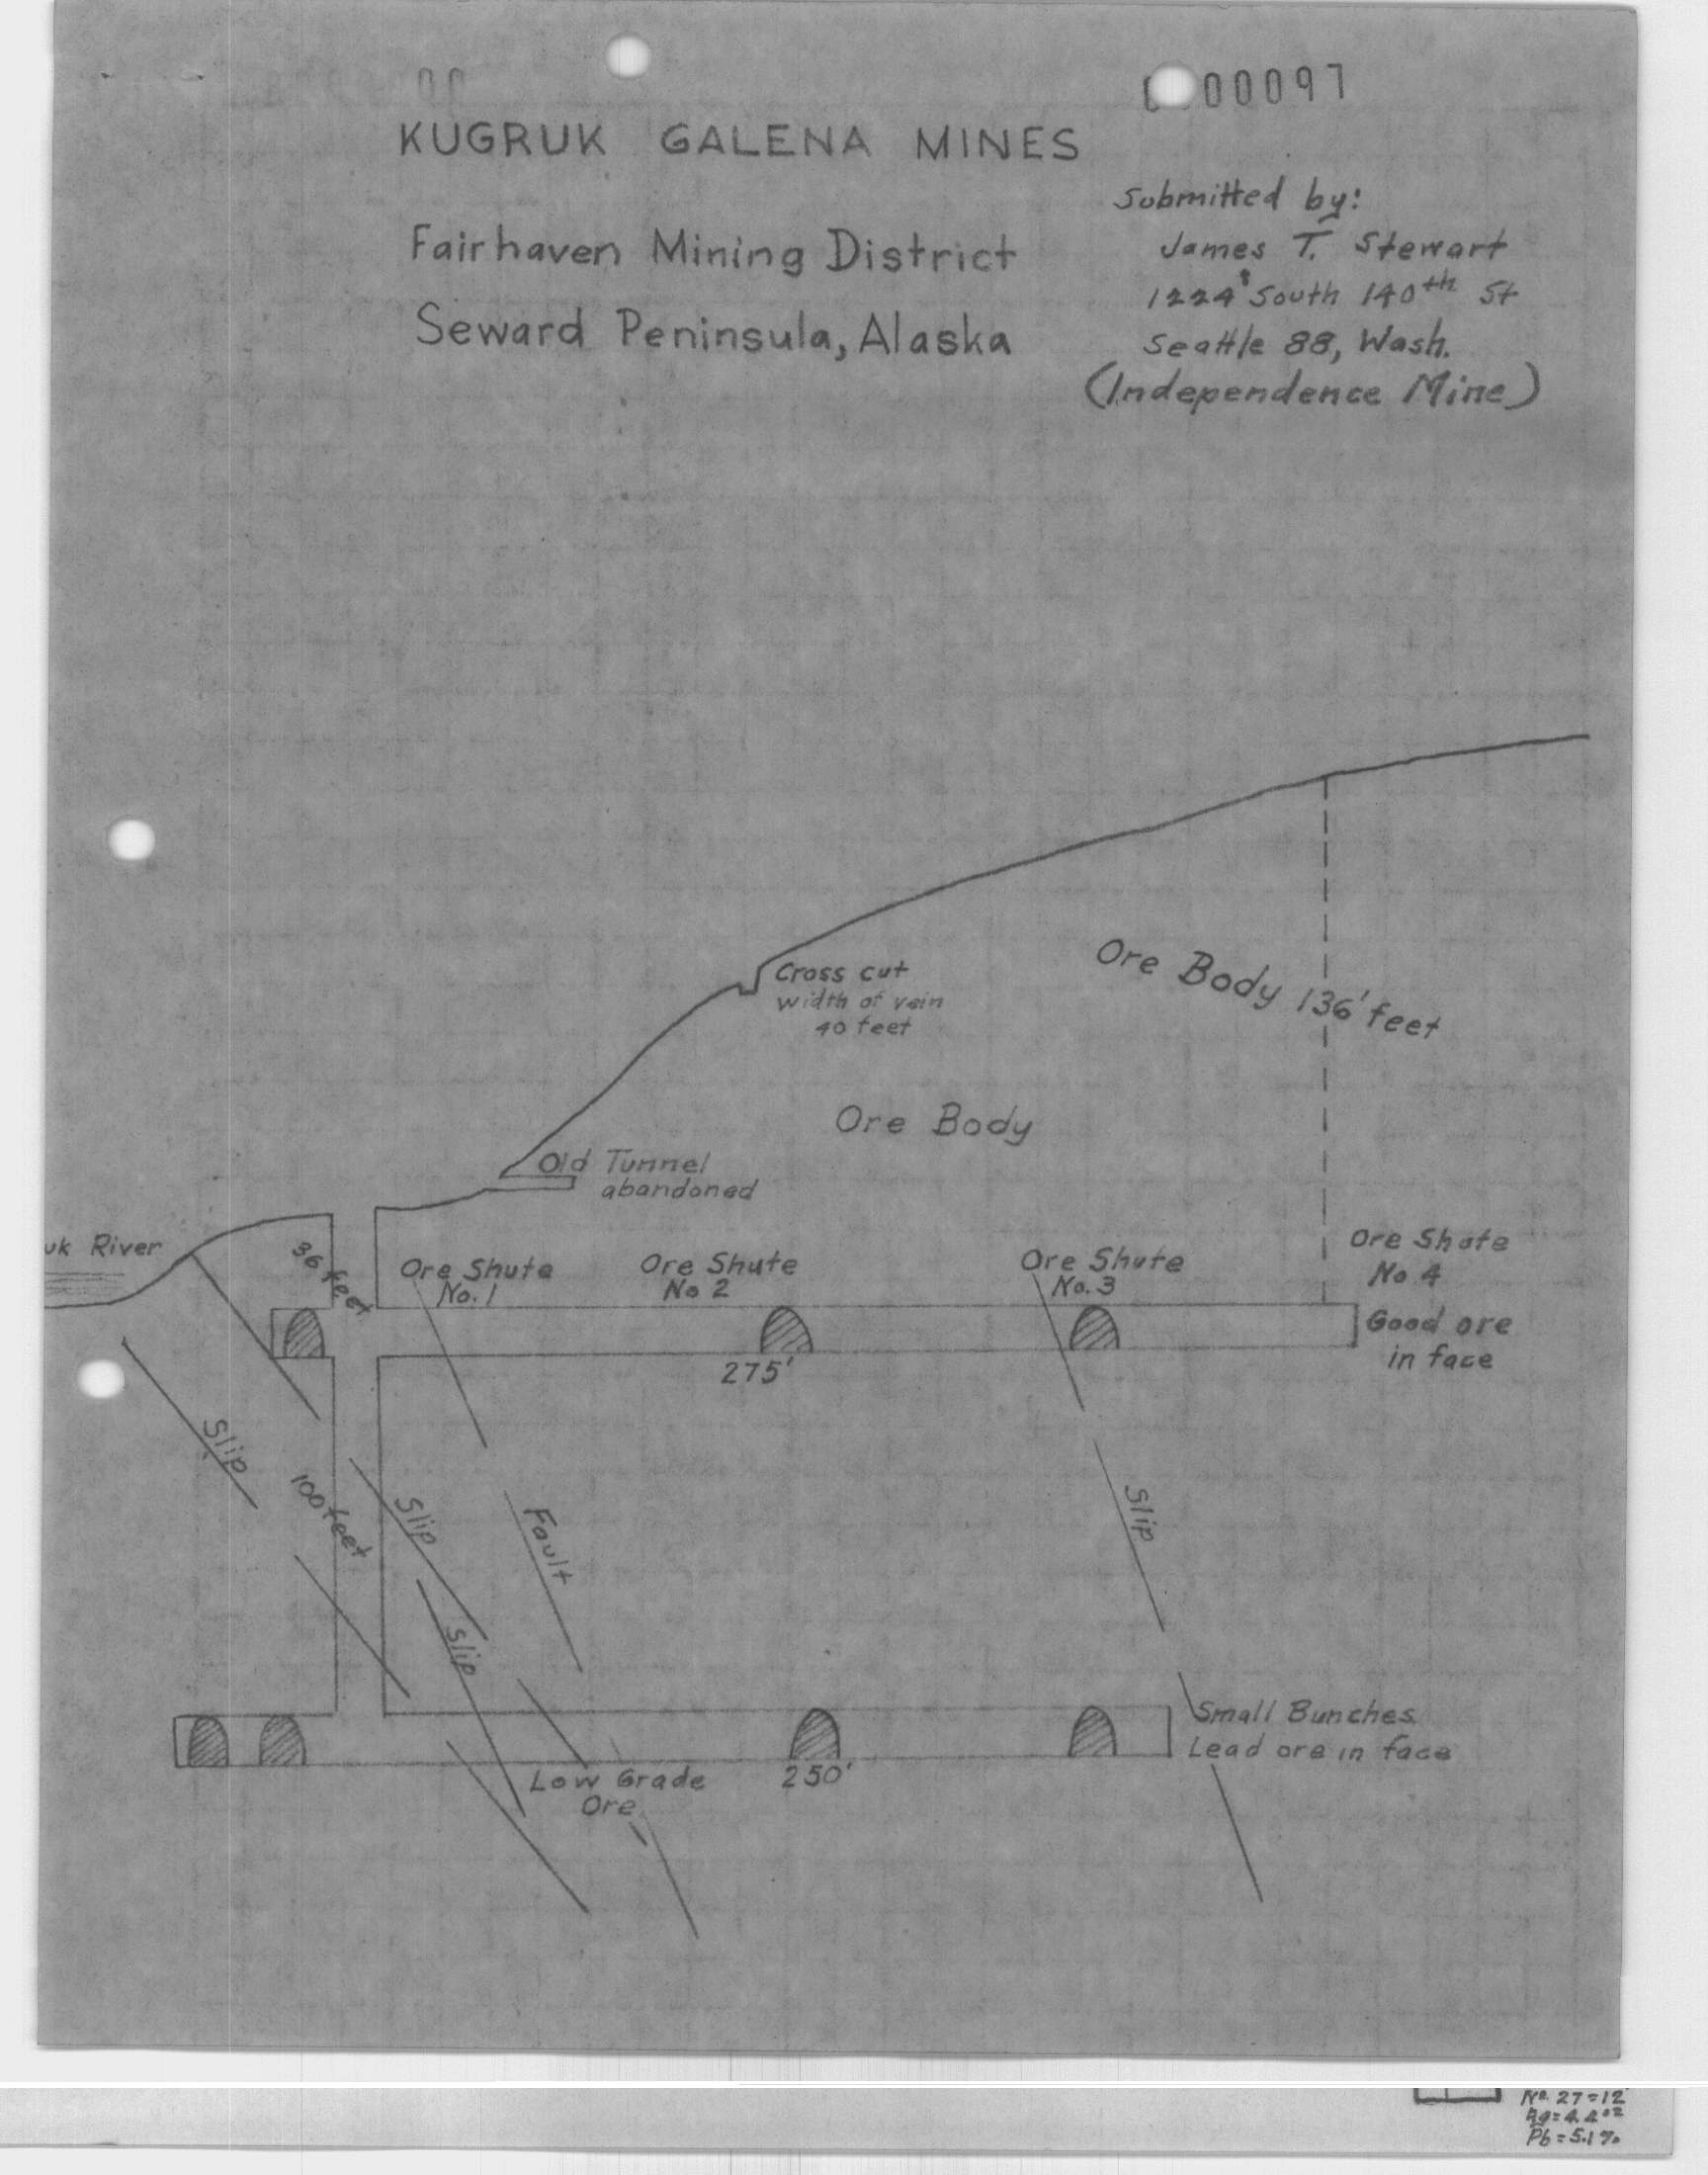 00097
KUGRUK GALENA MINES
Submitted by:
James T. Stewart
1224 South 140th St
Seattle 88, Wash.
(Independence Mine)
Fairhaven Mining District
Seward Peninsula, Alaska
Cross cut
width of vein
40 feet
Ore Body 136' feet
Ore Body
Old Tunnel
abandoned
uk River
36 feet
Ore Shute
No. 1
Ore Shute
No 2
Ore Shute
No. 3
Ore Shute
No 4
Good ore
in face
275'
Slip
100 feet
Slip
Fault
Slip
Slip
Small Bunches
Lead ore in face
Low Grade
Ore
250'
No. 27=12'
Pb=5.1%